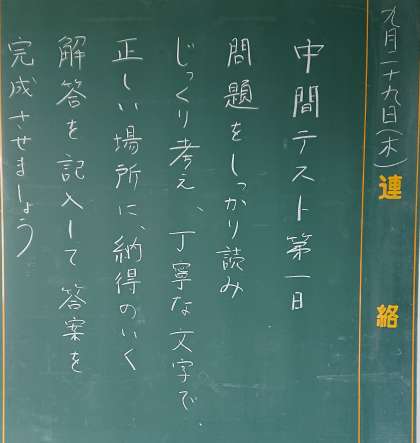 九月二十九日(木)
連絡
中間テスト第一日
問題をしっかり読み
じっくり考え、丁寧な文字で、
正しい場所に、納得のいく
解答を記入して答案を
完成させましょう